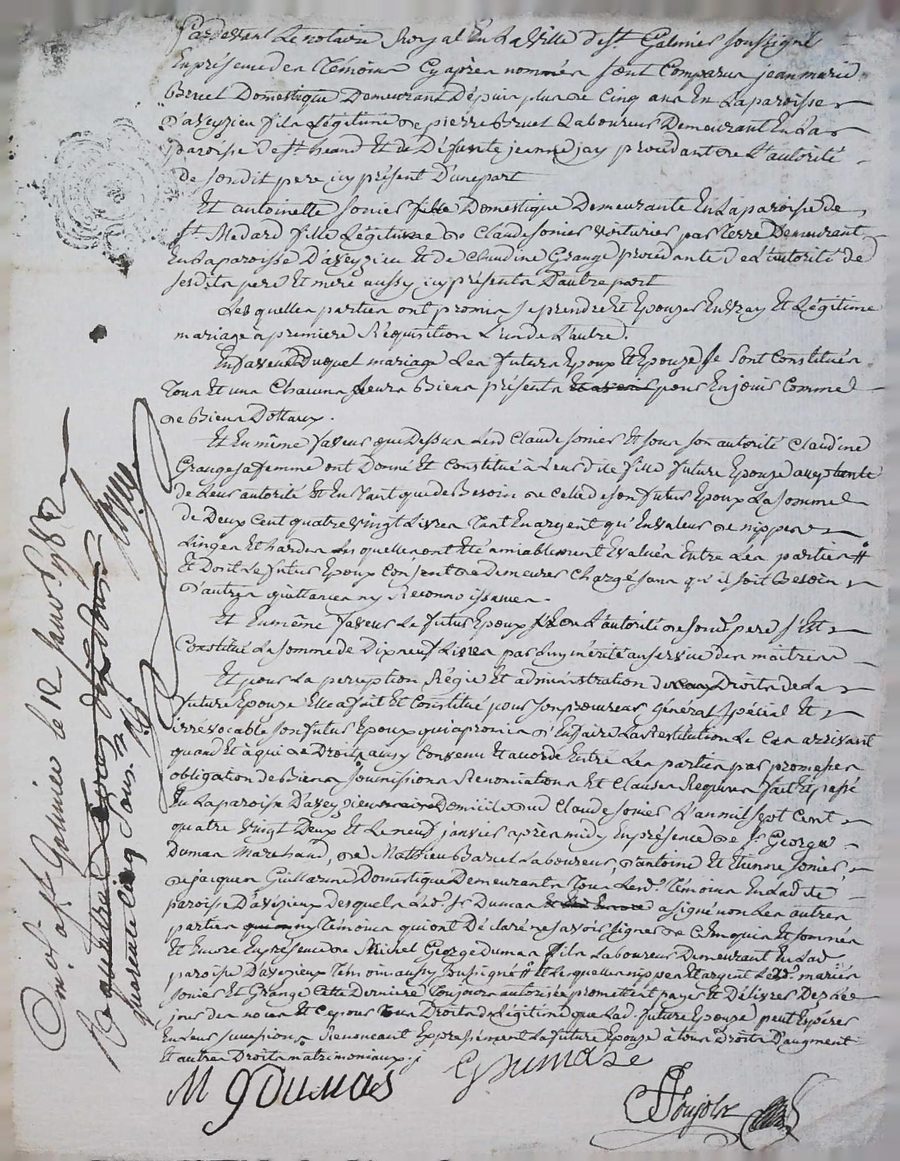 Pardevant Le notaire Royal En La Ville de st. Galmier soussigné
En présence des Témoins Cy après nommés sont Comparus jean marie
Bruel Domestique Demeurant Depuis plus de Cinq ans En La paroisse
d'aveyzieu fils Légitime de pierre Bruel Laboureur Demeurant En La
paroisse de st. heand Et de Défunte jeanne jay procédant de L'autorité
de sondit pere icy présent D'une part
Et antoinette sonier fille Domestique Demeurante En La paroisse de
st. Medard fille Légitime de Claude sonier voiturier par Terre Demeurant
En La paroisse D'aveyzieu Et de Claudine Grange procédante de L'autorité de
sesdits pere Et mere aussy icy présents D'autre part
Lesquelles parties ont promis se prendre Et Epouser En vray Et Légitime
mariage a premiere Réquisition L'un de L'autre.
En faveur Duquel mariage Les futurs Epoux Et Epouze se sont Constitués
Tous Et uns Chacuns Leurs Biens présents pour En jouir Comme
de Biens Dottaux.
Et En même faveur que Dessus Led Claude sonier Et sous son autorité Claudine
Grange sa femme ont Donné Et Constitué à Leur dite fille future Epouze acceptante
de Leur autorité Et En Tant que de Besoin de Celle de son futur Epoux La somme
de Deux Cent quatre vingt Livres Tant En argent qu'En valeur de nippes
Linges Et hardes Lesquelles ont Eté amiablement Evaluées Entre Les parties #
Et Dont Le futur Epoux Consent de Demeurer Chargé sans qu'il soit Besoin
D'autres quittances ny Reconnoissances.
Et En même faveur Le futur Epoux de L'autorité de sond. pere s'Est
Constitué La somme de Dix neuf Livres par Luy mérité au service des maitres
Et pour La perception Régie Et administration Droits de La
future Epouze Elle a fait Et Constitué pour son procureur général spécial Et
irrévocable son futur Epoux qui a promis D'En faire La Restitution Le Cas arrivant
quand Et à qui de Droit, ainsy Convenu Et accordé Entre Les parties par promesses
obligation de Biens soumissions Renonciations Et Clauses Requises fait Et passé
En La paroisse D'aveyzieu Domicile dud Claude sonier L'an mil sept Cent
quatre vingt Deux Et Le neuf janvier après midy En présence de sr. George
Dumas Marchand, de Mathieu Laboureur, D'antoine Et Etienne sonier
de jacques Guillarme Domestique Demeurants Tous Lesd. Témoins En Lad. de
paroisse D'aveyzieu Desquels Led. sr Dumas a signé non Les autres
parties ny Témoins qui ont Déclaré ne savoir signer de Ce Enquis Et sommés
Et Encore En présence de Michel George Dumas fils Laboureur Demeurant En Lad
paroisse D'aveyzieu Témoin aussy soussigné # Et Lesquelles nippes Et argent Lesd. mariés
sonier Et Grange Cette Derniere Toujours autorisée promettent payer Et Délivrer
jour des noces Et Ce pour Tous Droits De Légitime que Lad. future Epouze peut Espérer
En Leur succession Renonçant Expressément La future Epouze à tous Droits D'augment
Et autres Droits matrimoniaux.
M g DUMAS
G DUMAS
Poujolx
à st. Galmier le 12 janvr. 1782
quarante cinq sous